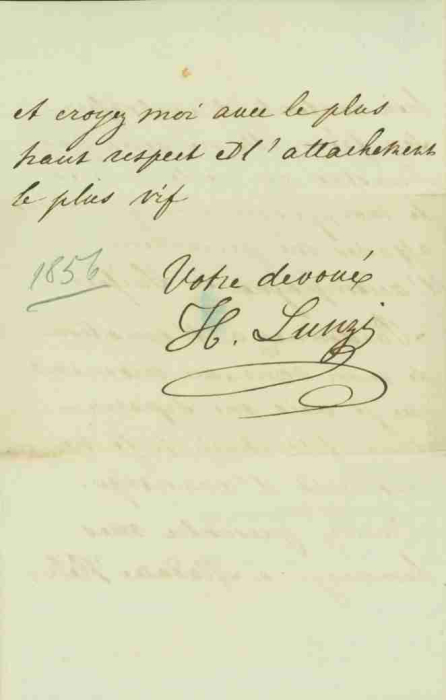 et croyez moi avec le plus
haut respect et l'attachement
le plus vif
1856
Votre devoué
H. Lunzi